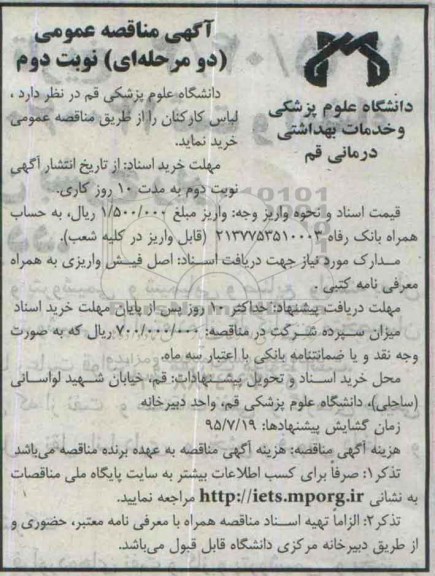 آگهی مناقصه عمومی
(دو مرحله‌ای) نوبت دوم
دانشگاه علوم پزشکی
وخدمات بهداشتی
درمانی قم
دانشگاه علوم پزشکی قم در نظر دارد ،
لباس کارکنان را از طریق مناقصه عمومی
خرید نماید.
مهلت خرید اسناد: از تاریخ انتشار آگهی
نوبت دوم به مدت ۱۰ روز کاری.
قیمت اسناد و نحوه واریز وجه: واریز مبلغ ۱/۵۰۰/۰۰۰ ریال، به حساب
همراه بانک رفاه ۲۱۳۷۷۵۳۵۱۰۰۰۳ (قابل واریز در کلیه شعب).
مـدارک مورد نیاز جهت دریافت اسـناد: اصل فیـش واریزی به همراه
معرفی نامه کتبی .
مهلت دریافت پیشنهاد: حداکثر ۱۰ روز پس از پایان مهلت خرید اسناد
میزان سـپرده شـرکت در مناقصه: ۷۰۰/۰۰۰/۰۰۰ ریال که به صورت
وجه نقد و یا ضمانتنامه بانکی با اعتبار سه ماه.
محل خرید اسـناد و تحویل پیشـنهادات: قم، خیابان شـهید لواسـانی
(ساحلی)، دانشگاه علوم پزشکی قم، واحد دبیرخانه
زمان گشایش پیشنهادها: ۹۵/۷/۱۹
هزینه آگهی مناقصه: هزینه آگهی مناقصه به عهده برنده مناقصه می‌باشد.
تذکر۱: صرفاً برای کسب اطلاعات بیشتر به سایت پایگاه ملی مناقصات
به نشانی http://iets.mporg.ir مراجعه نمایید.
تذکر۲: الزاماً تهیه اسـناد مناقصه همراه با معرفی نامه معتبر، حضوری و
از طریق دبیرخانه مرکزی دانشگاه قابل قبول می‌باشد.